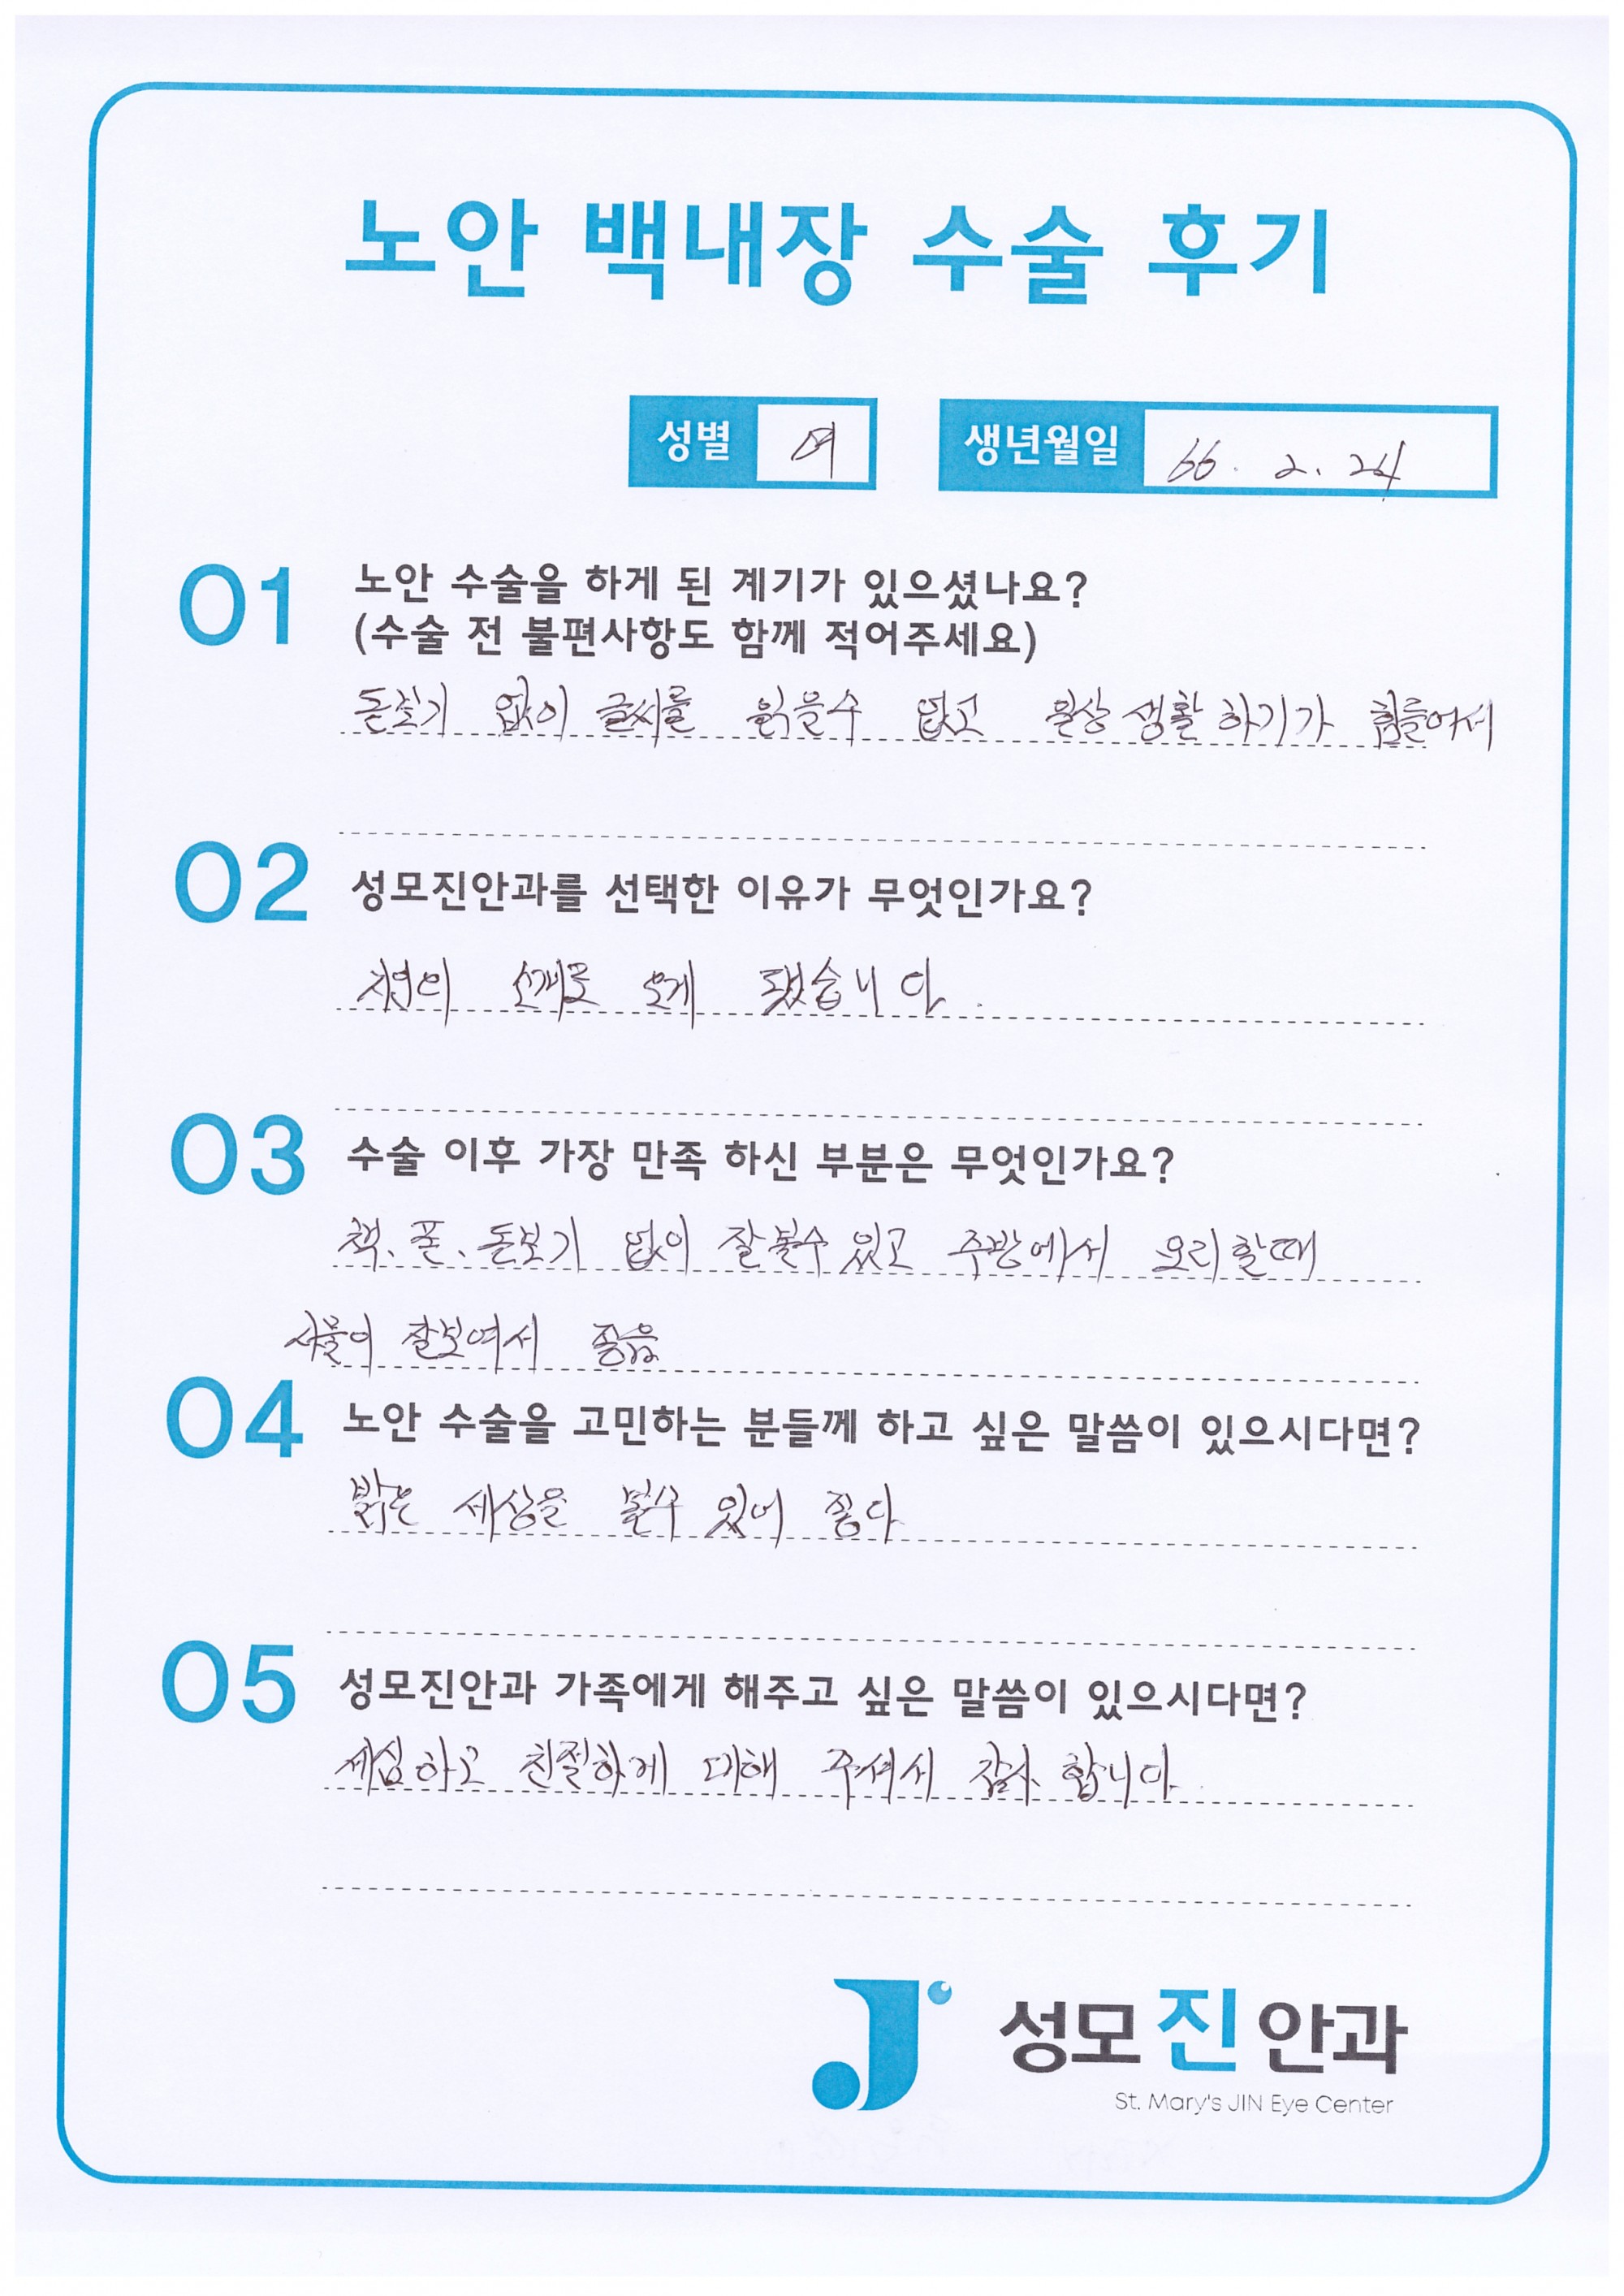 노안 백내장 수술 후기
성별 여 생년월일 66. 2. 24
01 노안 수술을 하게 된 계기가 있으셨나요?
(수술 전 불편사항도 함께 적어주세요)
없이 글씨를 읽을수 없고 일상 생활 하기가 힘들어서
02 성모진안과를 선택한 이유가 무엇인가요?
지인의 소개로 오게 됐습니다.
03 수술 이후 가장 만족 하신 부분은 무엇인가요?
책、폰、돋보기 없이 잘볼수 있고 주방에서 요리할때
사물이 잘보여서 좋음
04 노안 수술을 고민하는 분들께 하고 싶은 말씀이 있으시다면?
밝은 세상을 볼수 있어 좋다
05 성모진안과 가족에게 해주고 싶은 말씀이 있으시다면?
세심하고 친절하게 대해 주셔서 감사 합니다.
성모진안과
St. Mary's JIN Eye Center